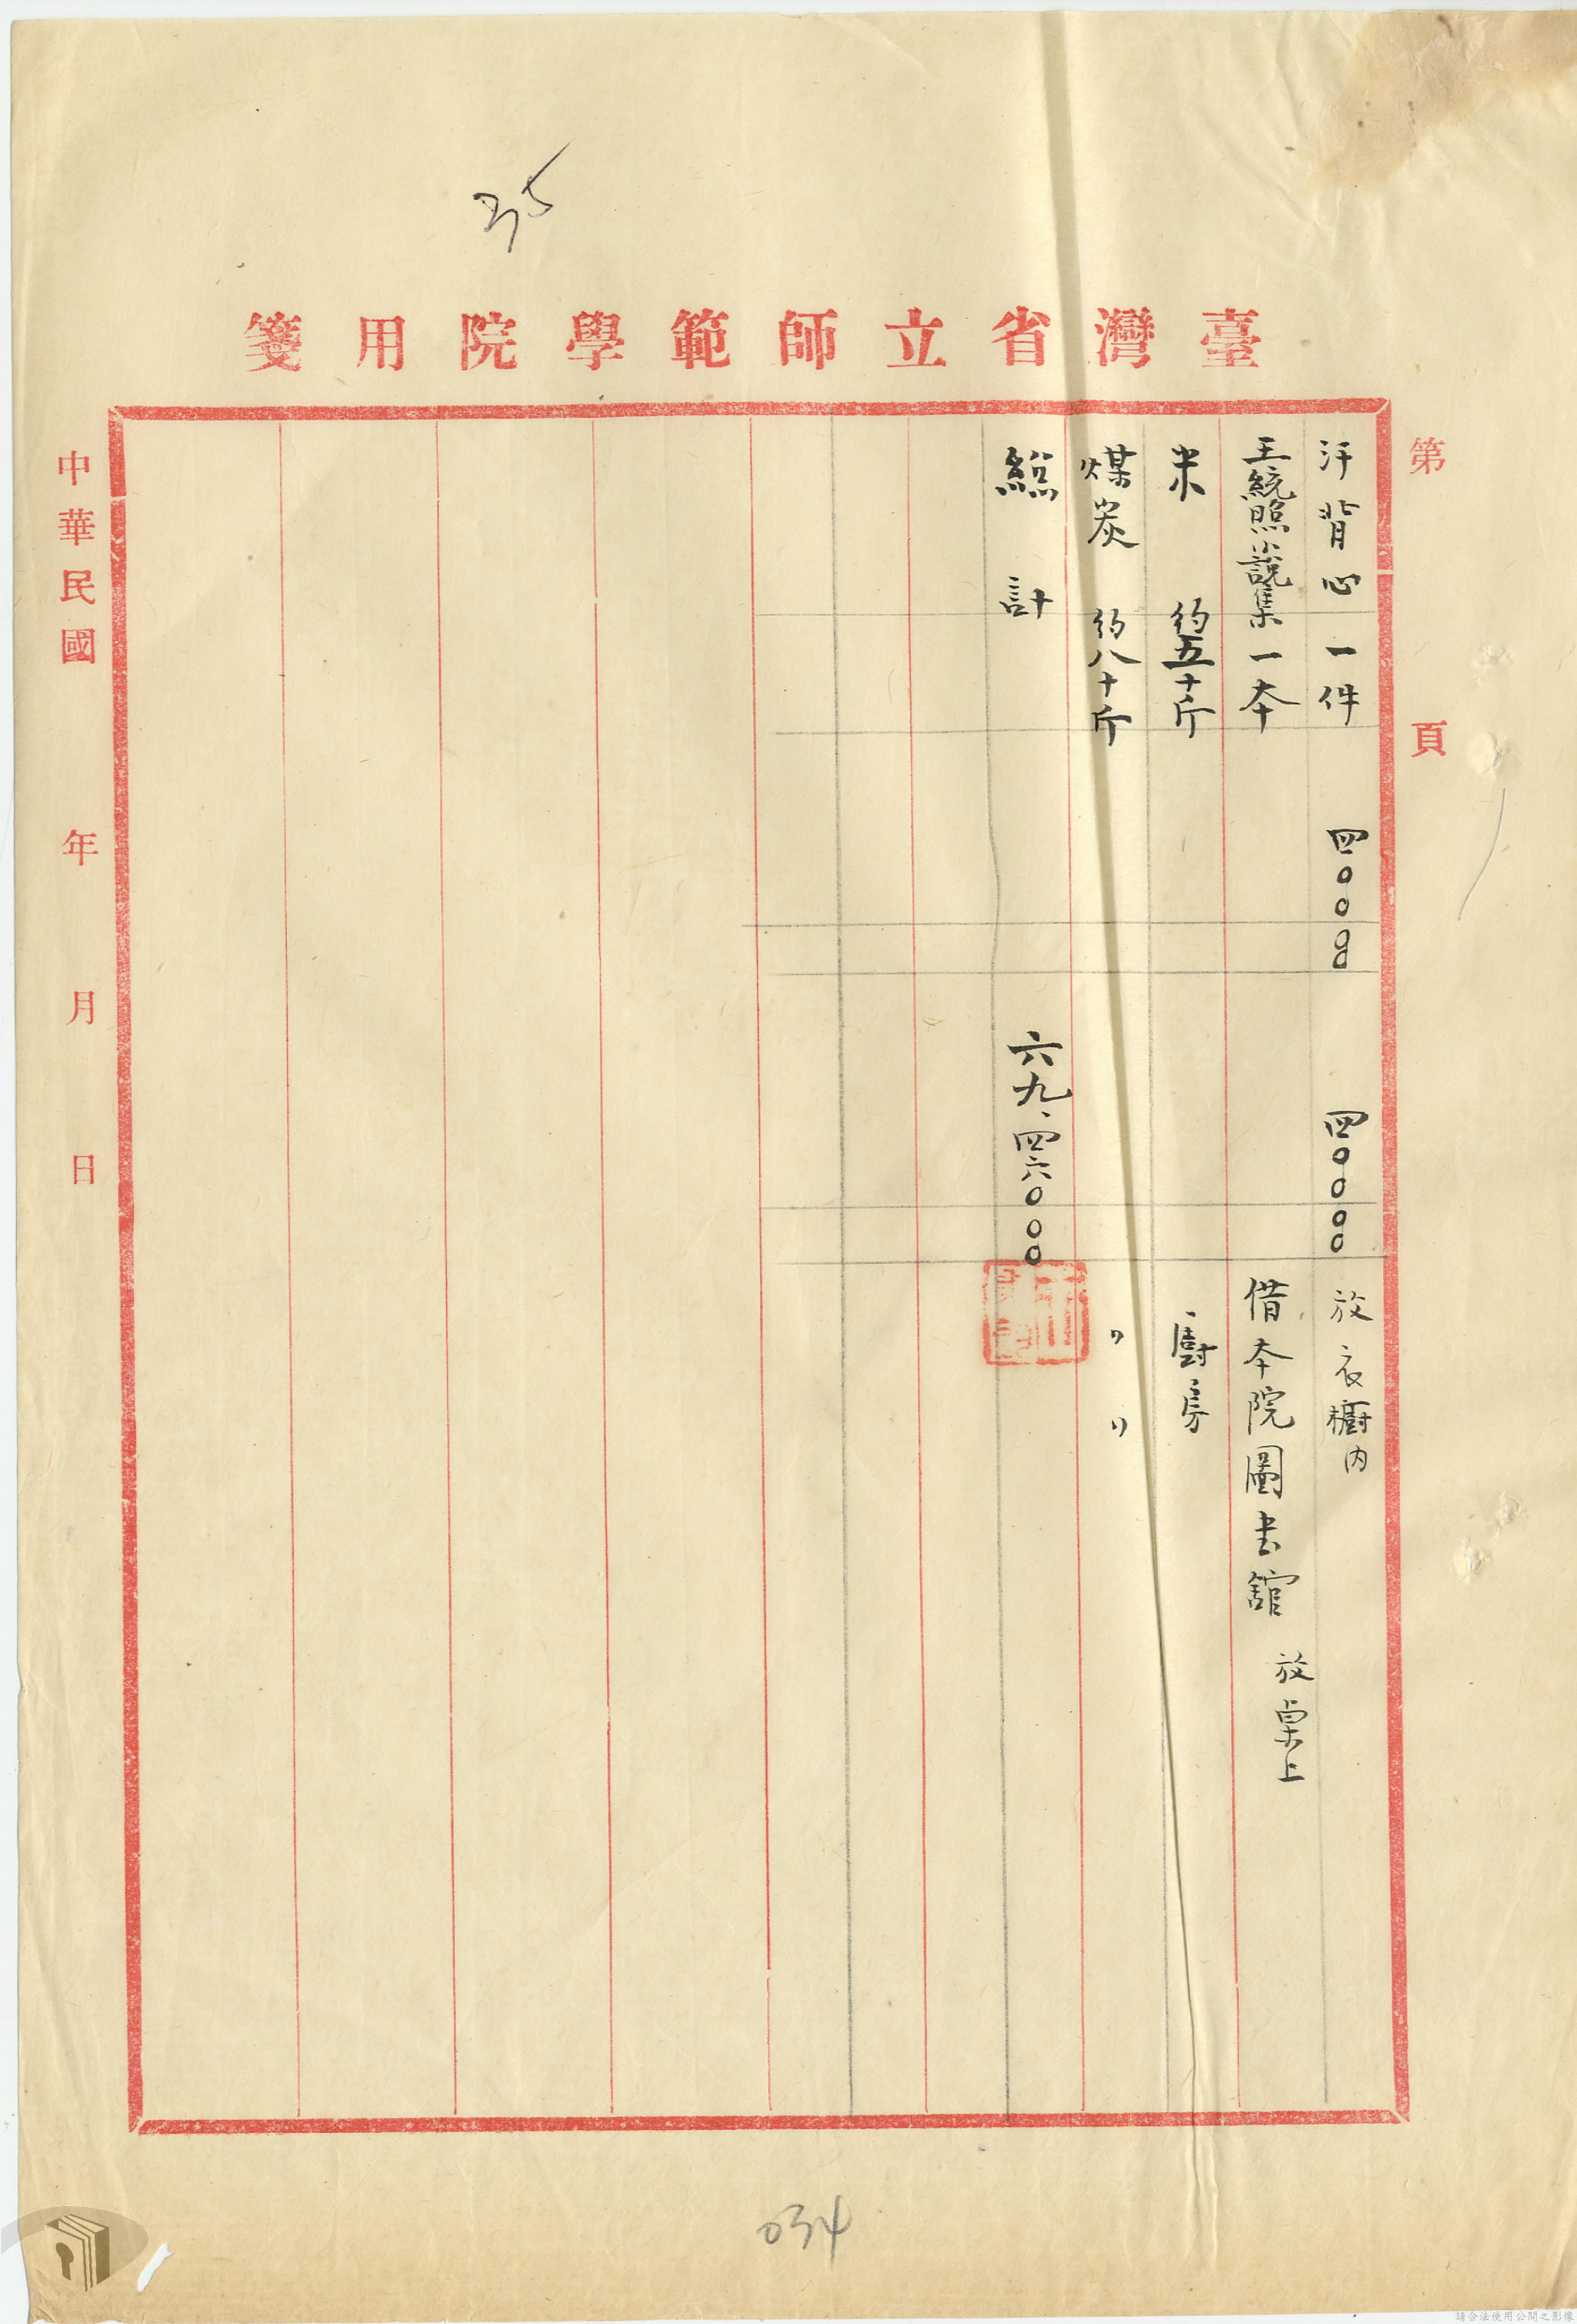 35
臺灣省立師範學院用箋
第 頁
汗背心 一件 四〇〇〇〇 四〇〇〇〇 放衣櫥内
王統照小說集 一本 借本院圖書館 放桌上
米 約五十斤 廚房
煤炭 約八十斤 〃 〃
總計 六九、四六〇〇〇
中華民國 年 月 日
034
請合法使用公開之影像